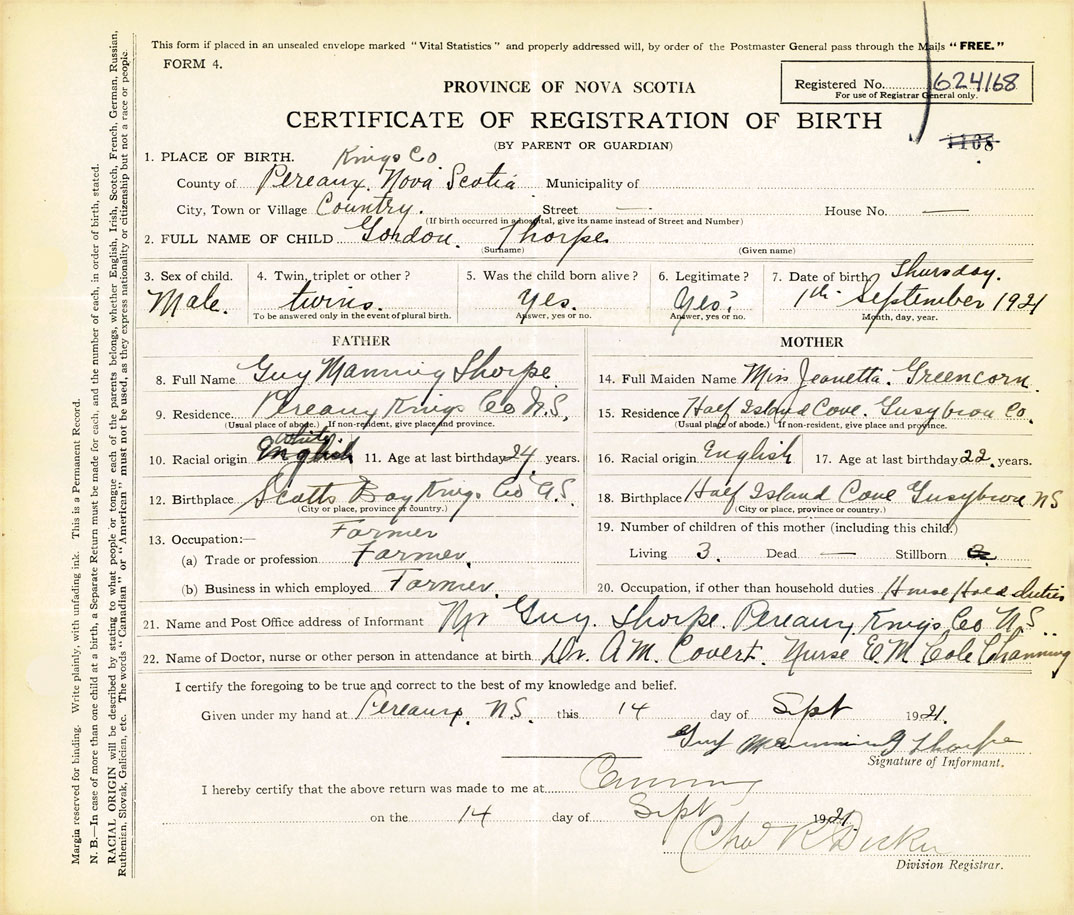 This form if placed in an unsealed envelope marked "Vital Statistics" and properly addressed will, by order of the Postmaster General pass through the Mails "FREE."
FORM 4.
Registered No. 624168
For use of Registrar General only.
PROVINCE OF NOVA SCOTIA
CERTIFICATE OF REGISTRATION OF BIRTH
1168
(BY PARENT OR GUARDIAN)
1. PLACE OF BIRTH. Kings Co.
County of Pereaux. Nova Scotia Municipality of
City, Town or Village Country. Street — House No. —
(If birth occurred in a hospital, give its name instead of Street and Number)
2. FULL NAME OF CHILD Gordon. Thorpe
(Surname) (Given name)
3. Sex of child. 4. Twin, triplet or other? 5. Was the child born alive? 6. Legitimate? 7. Date of birth Thursday.
Male. twins. Yes. Yes? 1th September 1921
To be answered only in the event of plural birth. Answer, yes or no. Answer, yes or no. Month, day, year.
FATHER
8. Full Name Guy Manning Thorpe
9. Residence. Pereaux Kings Co N.S.
(Usual place of abode.) If non-resident, give place and province.
White.
10. Racial origin English 11. Age at last birthday 24 years.
12. Birthplace Scotts Bay Kings Co N.S
(City or place, province or country.)
13. Occupation:— Farmer
(a) Trade or profession Farmer.
(b) Business in which employed Farmer.
MOTHER
14. Full Maiden Name Miss Jeanetta. Greencorn.
15. Residence Half Island Cove. Gusybrou Co.
(Usual place of abode.) If non-resident, give place and province.
16. Racial origin English 17. Age at last birthday 22. years.
18. Birthplace Half Island Cove Gusybrou NS
(City or place, province or country.)
19. Number of children of this mother (including this child.)
Living 3. Dead — Stillborn
20. Occupation, if other than household duties House Hold duties
21. Name and Post Office address of Informant Mr Guy. Thorpe. Pereaux Kings Co N.S..
22. Name of Doctor, nurse or other person in attendance at birth. Dr. A M. Covert. Nurse E. M. Cole
I certify the foregoing to be true and correct to the best of my knowledge and belief.
Given under my hand at Pereaux. N.S. this 14 day of Sept 1921.
Guy Manning Thorpe
Signature of Informant.
I hereby certify that the above return was made to me at Canning
on the 14 day of Sept 1921.
Division Registrar.
Margin reserved for binding. Write plainly, with unfading ink. This is a Permanent Record.
N. B.—In case of more than one child at a birth, a Separate Return must be made for each, and the number of each, in order of birth, stated.
RACIAL ORIGIN will be described by stating to what people or tongue each of the parents belongs, whether English, Irish, Scotch, French, German, Russian,
Ruthenian, Slovak, Galician, etc. The words "Canadian" or "American" must not be used, as they express nationality or citizenship but not a race or people.